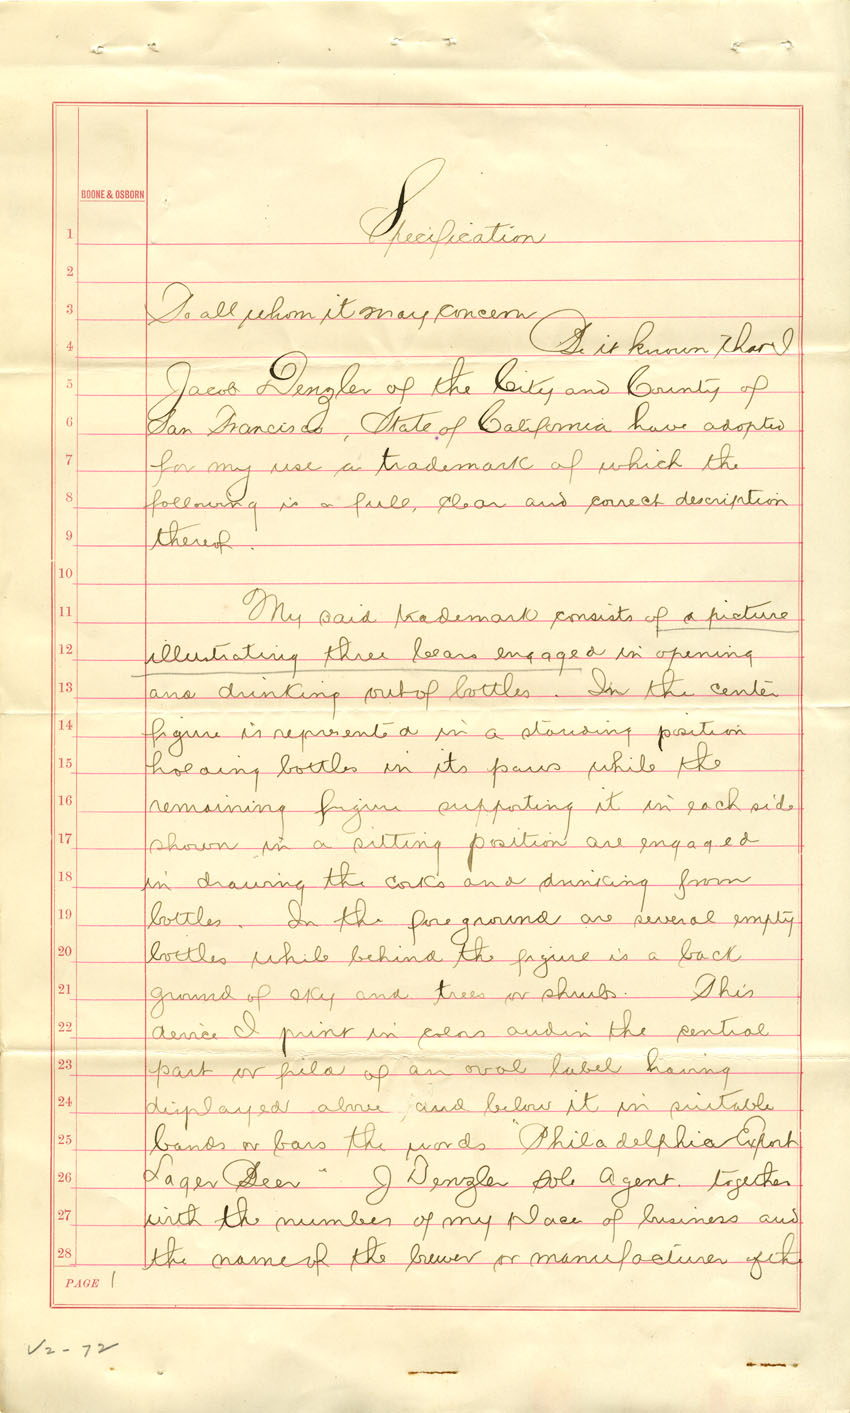 BOONE & OSBORN
1 Specification
2
3 To all whom it may concern
4 Be it known that I
5 Jacob Denzler of the City and County of
6 San Francisco, State of California have adopted
7 for my use a trademark of which the
8 following is a full, clear and correct description
9 thereof.
10
11 My said trademark consists of a picture
12 illustrating three bears engaged in opening
13 and drinking out of bottles. In the center
14 figure is represented in a standing position
15 holding bottles in its paws while the
16 remaining figure supporting it in each side
17 shown in a sitting position are engaged
18 in drawing the corks and drinking from
19 bottles. In the foreground are several empty
20 bottles while behind the figure is a back
21 ground of sky and trees or shrubs. This
22 device I print in colors and in the central
23 part or field of an oval label having
24 displayed above and below it in suitable
25 bands or bars the words "Philadelphia Export
26 Lager Beer" J Denzler sole Agent. together
27 with the number of my place of business and
28 the name of the brewer or manufacturer of the
PAGE 1
V2-72